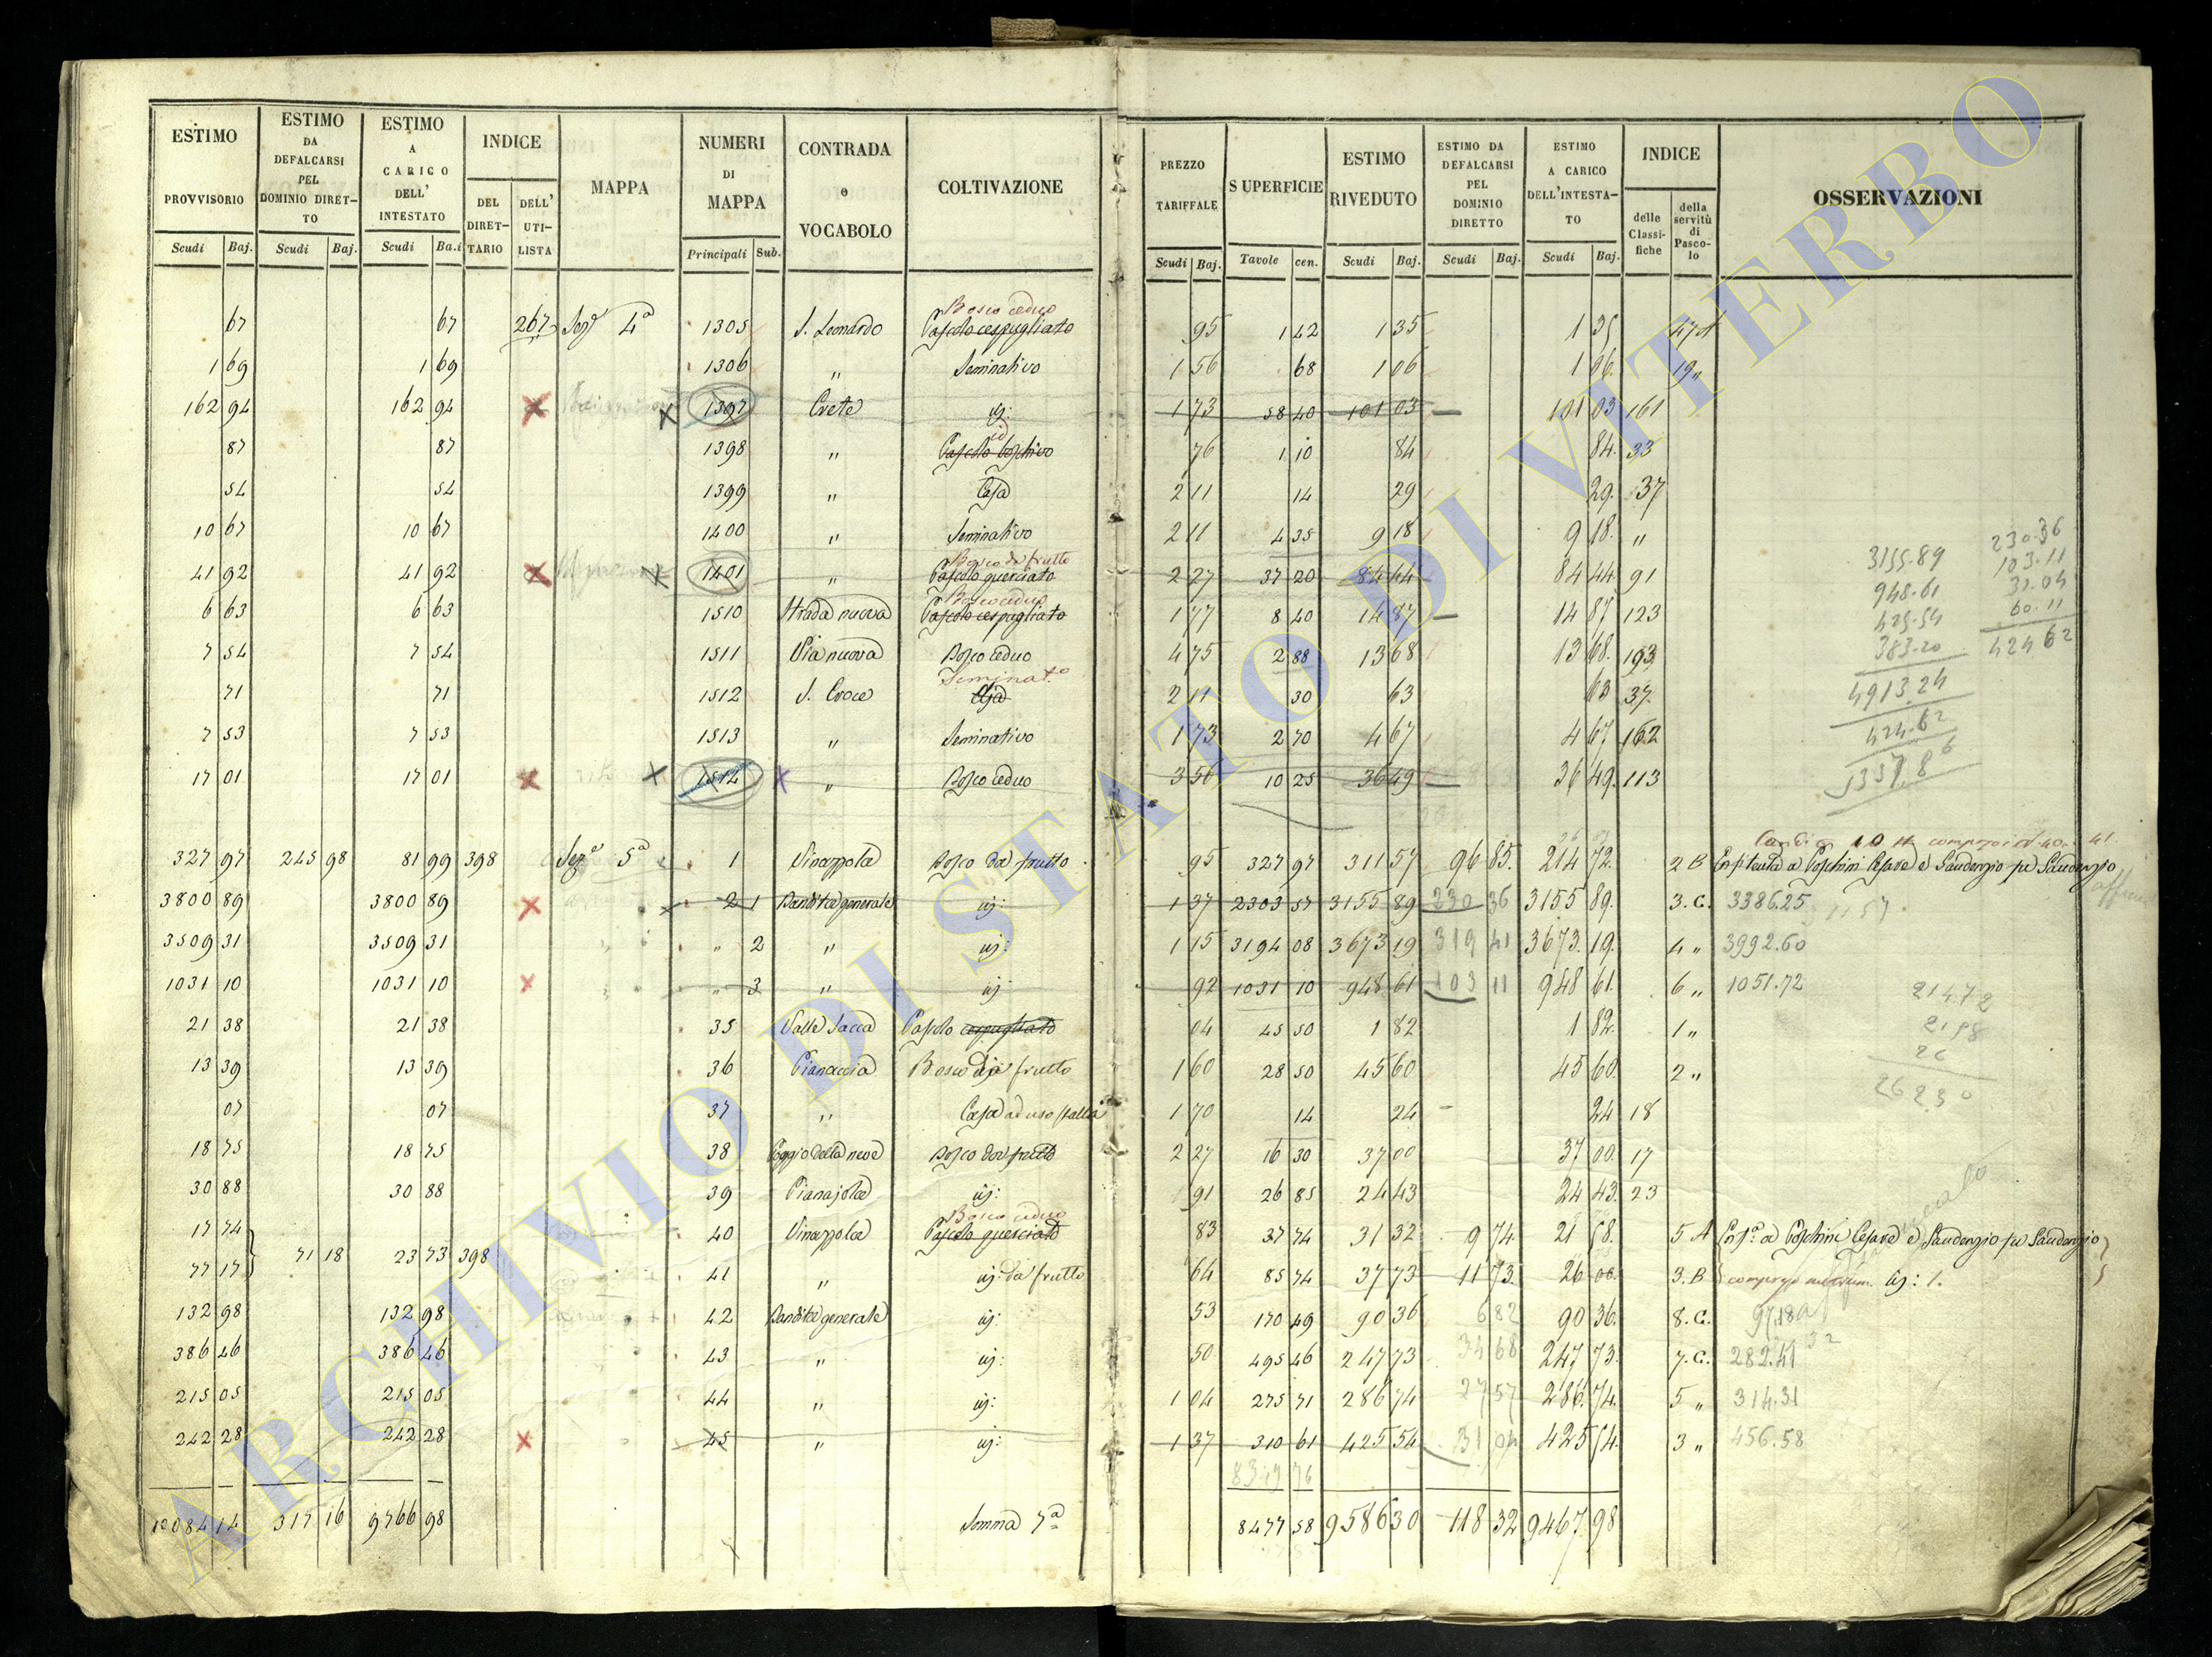 ESTIMO PROVVISORIO Scudi Baj. ESTIMO DA DEFALCARSI PEL DOMINIO DIRETTO Scudi Baj. ESTIMO A CARICO DELL' INTESTATO Scudi Ba.i INDICE DEL DIRETTARIO DELL' UTILISTA MAPPA NUMERI DI MAPPA Principali Sub. CONTRADA e VOCABOLO COLTIVAZIONE PREZZO TARIFFALE Scudi Baj. SUPERFICIE Tavole cen. ESTIMO RIVEDUTO Scudi Baj. ESTIMO DA DEFALCARSI PEL DOMINIO DIRETTO Scudi Baj. ESTIMO A CARICO DELL'INTESTATO Scudi Baj. INDICE delle Classifiche della servitù di Pascolo OSSERVAZIONI
Bosco ceduo
67 67 267 Sez.e 4a 1305 S. Leonardo Pascolo cespugliato 95 1 42 1 35 1 35 47 A
1 69 1 69 1306 " Seminativo 1 56 68 1 06 1 06 19 "
162 94 162 94 Crete id: 1 73 58 40 101 03 101 03 161
id
87 87 1398 " Pascolo boschivo 76 1 10 84 84 33
54 54 1399 " Casa 2 11 14 29 29 37
10 67 10 67 1400 " Seminativo 2 11 4 35 9 18 9 18 "
Bosco da frutto
41 92 41 92 1401 " Pascolo querciato 2 27 37 20 84 44 84 44 91
Bosco ceduo
6 63 6 63 1510 Strada nuova Pascolo cespugliato 1 77 8 40 14 87 14 87 123
7 54 7 54 1511 Via nuova Bosco ceduo 4 75 2 88 13 68 13 68 193
Seminat.o
71 71 1512 S. Croce 2 11 30 63 63 37
7 53 7 53 1513 " Seminativo 1 73 2 70 4 67 4 67 162
17 01 17 01 1514 " Bosco ceduo 3 56 10 25 36 49 36 49 113
3155.89
948.61
425.54
383.20
4913.24
424.62
230.36
103.11
31.04
60.11
424 62
327 97 245 98 81 99 398 Sez.e 5a 1 Vinazzola Bosco da frutto 95 327 97 311 57 96 85 214 72 2 B Enfiteuta a Poschini Cesare e Saudenzio fu Saudenzio
3800 89 3800 89 2 1 Bandita generale id: 1 37 2303 57 3155 89 230 36 3155 89 3. C. 3386.25
3509 31 3509 31 " 2 " id: 1 15 3194 08 3673 19 319 41 3673 19 4 " 3992.60
1031 10 1031 10 " 3 " id 92 1031 10 948 61 103 11 948 61 6 " 1051.72
21 38 21 38 35 Valle Sacca Pascolo cespugliato 04 45 50 1 82 1 82 1 "
13 39 13 39 36 Pianaccia Bosco da frutto 1 60 28 50 45 60 45 60 2 "
07 07 37 " Casa ad uso stalla 1 70 14 24 24 18
18 75 18 75 38 Poggio della neve Bosco da frutto 2 27 16 30 37 00 37 00 17
30 88 30 88 39 Pianajola id: 91 26 85 24 43 24 43 23
Bosco ceduo
17 74 40 Vinazzola Pascolo querciato 83 37 74 31 32 9 74 21 58 5 A Enf.a a Poschini Cesare e Saudenzio fu Saudenzio
71 18 23 73 398
77 17 41 " id: da frutto 64 85 74 37 73 11 73 26 00 3. B id: 1.
132 98 132 98 42 Bandita generale id: 53 170 49 90 36 6 82 90 36 8. C.
386 46 386 46 43 " id: 50 495 46 247 73 34 68 247 73 7. C. 282.41
215 05 215 05 44 " id: 1 04 275 71 286 74 27 57 286 74 5 " 314.31
242 28 242 28 45 " id: 1 37 310 61 425 54 31 04 425 54 3 " 456.58
10084 14 317 16 9766 98 Somma 7a 8477 58 9586 30 118 32 9467 98
ARCHIVIO DI STATO DI VITERBO